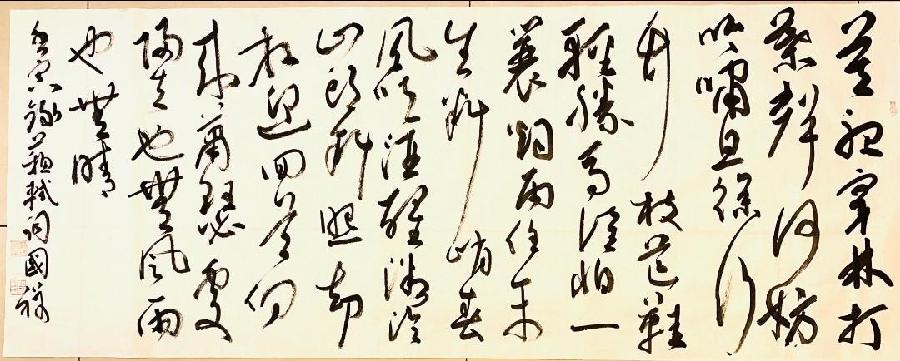 莫聽穿林打
葉聲何妨
吟嘯且徐行
竹杖芒鞋
輕勝馬誰怕一
蓑烟雨任平
生料峭春
風吹酒醒微冷
山頭斜照却
相迎回首向
來蕭瑟處
歸去也無風雨
也無晴
錄蘇軾詞國祥